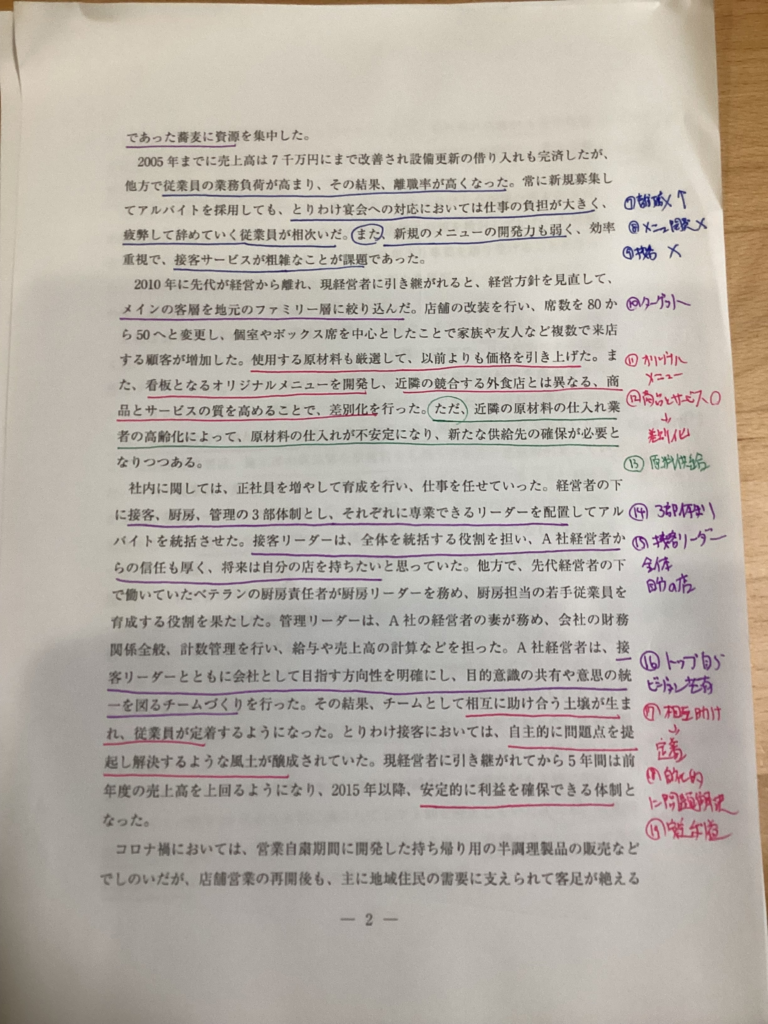 であった蕎麦に資源を集中した。
2005年までに売上高は7千万円にまで改善され設備更新の借り入れも完済したが、
他方で従業員の業務負荷が高まり、その結果、離職率が高くなった。常に新規募集し
てアルバイトを採用しても、とりわけ宴会への対応においては仕事の負担が大きく、
疲弊して辞めていく従業員が相次いだ。また、新規のメニューの開発力も弱く、効率
重視で、接客サービスが粗雑なことが課題であった。
2010年に先代が経営から離れ、現経営者に引き継がれると、経営方針を見直して、
メインの客層を地元のファミリー層に絞り込んだ。店舗の改装を行い、席数を80か
ら50へと変更し、個室やボックス席を中心としたことで家族や友人など複数で来店
する顧客が増加した。使用する原材料も厳選して、以前よりも価格を引き上げた。ま
た、看板となるオリジナルメニューを開発し、近隣の競合する外食店とは異なる、商
品とサービスの質を高めることで、差別化を行った。ただ、近隣の原材料の仕入れ業
者の高齢化によって、原材料の仕入れが不安定になり、新たな供給先の確保が必要と
なりつつある。
社内に関しては、正社員を増やして育成を行い、仕事を任せていった。経営者の下
に接客、厨房、管理の3部体制とし、それぞれに専業できるリーダーを配置してアル
バイトを統括させた。接客リーダーは、全体を統括する役割を担い、A社経営者か
らの信任も厚く、将来は自分の店を持ちたいと思っていた。他方で、先代経営者の下
で働いていたベテランの厨房責任者が厨房リーダーを務め、厨房担当の若手従業員を
育成する役割を果たした。管理リーダーは、A社の経営者の妻が務め、会社の財務
関係全般、計数管理を行い、給与や売上高の計算などを担った。A社経営者は、接
客リーダーとともに会社として目指す方向性を明確にし、目的意識の共有や意思の統
一を図るチームづくりを行った。その結果、チームとして相互に助け合う土壌が生ま
れ、従業員が定着するようになった。とりわけ接客においては、自主的に問題点を提
起し解決するような風土が醸成されていた。現経営者に引き継がれてから5年間は前
年度の売上高を上回るようになり、2015年以降、安定的に利益を確保できる体制と
なった。
コロナ禍においては、営業自粛期間に開発した持ち帰り用の半調理製品の販売など
でしのいだが、店舗営業の再開後も、主に地域住民の需要に支えられて客足が絶える
— 2 —
⑦離職×↑
⑧メニュー開発×
⑨接客 ×
⑩ターゲット
⑪オリジナル
メニュー
⑫商品とサービス○
↓
差別化
⑬原料供給
⑭3部体制
⑮接客リーダー
全体
⑯トップ自ら
ビジョン共有
⑰相互助け
↓
定着
⑱自主的
に問題解決